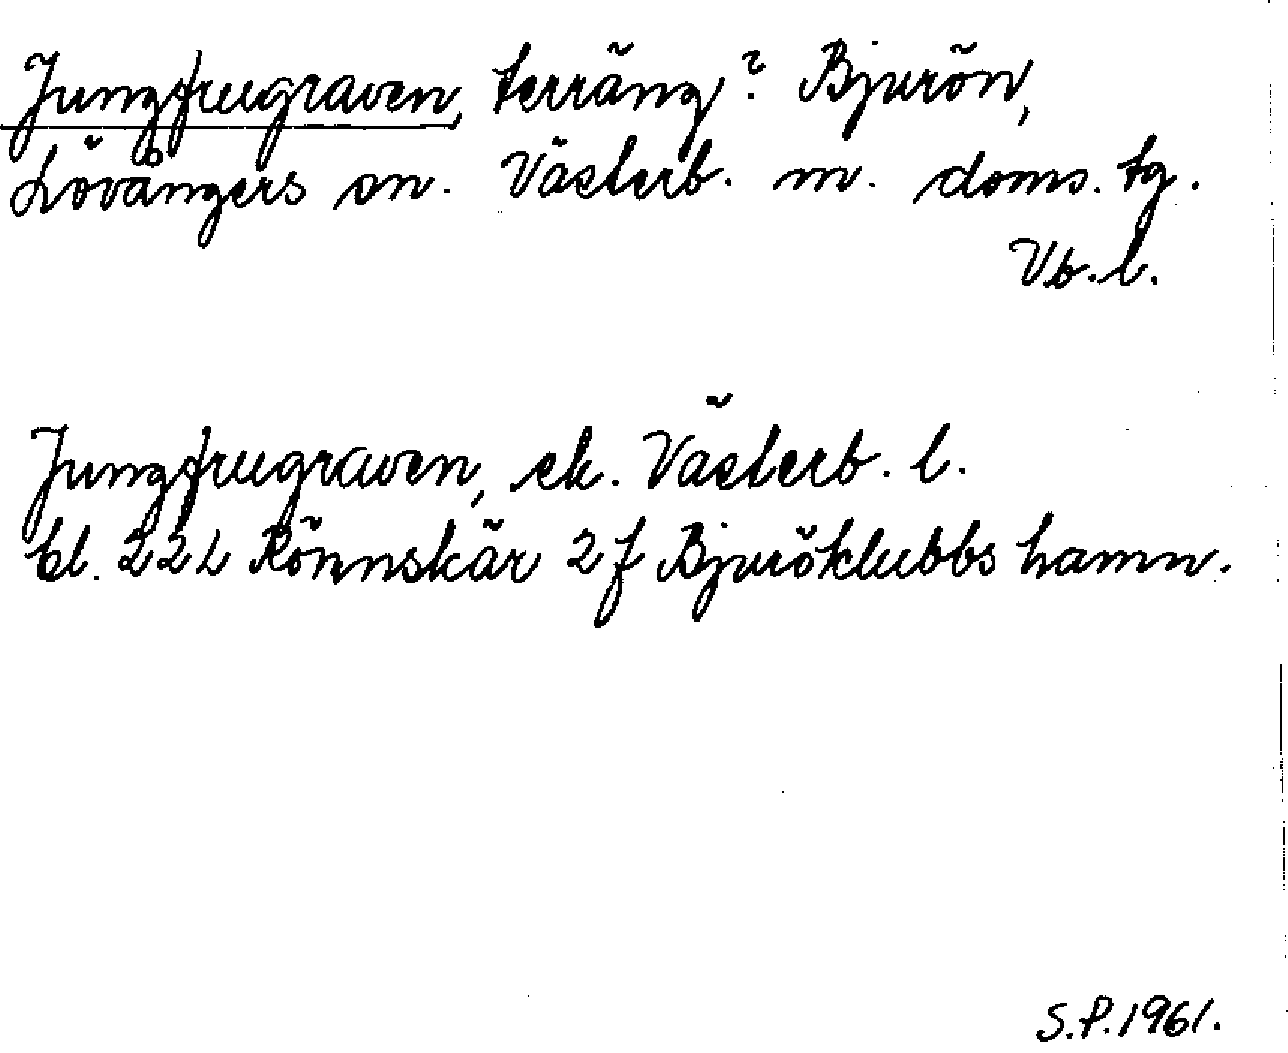 Jungfrugraven, terräng? Bjurön,
Lövångers sn. Västerb. m. doms. tg.
Vb. l.
Jungfrugraven, ek. Västerb. l.
bl. 22 L Rönnskär 2 f Bjuröklubbs hamn.
S.P. 1961.